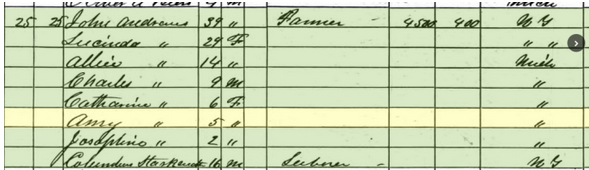 25 25 John Andrews 39 " Farmer 4500 400 N Y
Lucinda " 29 F " "
14 " Mich
Charles " 9 M "
Catharine " 6 F "
Amy " 5 " "
Josephine " 2 " "
Columbus 16 M N Y